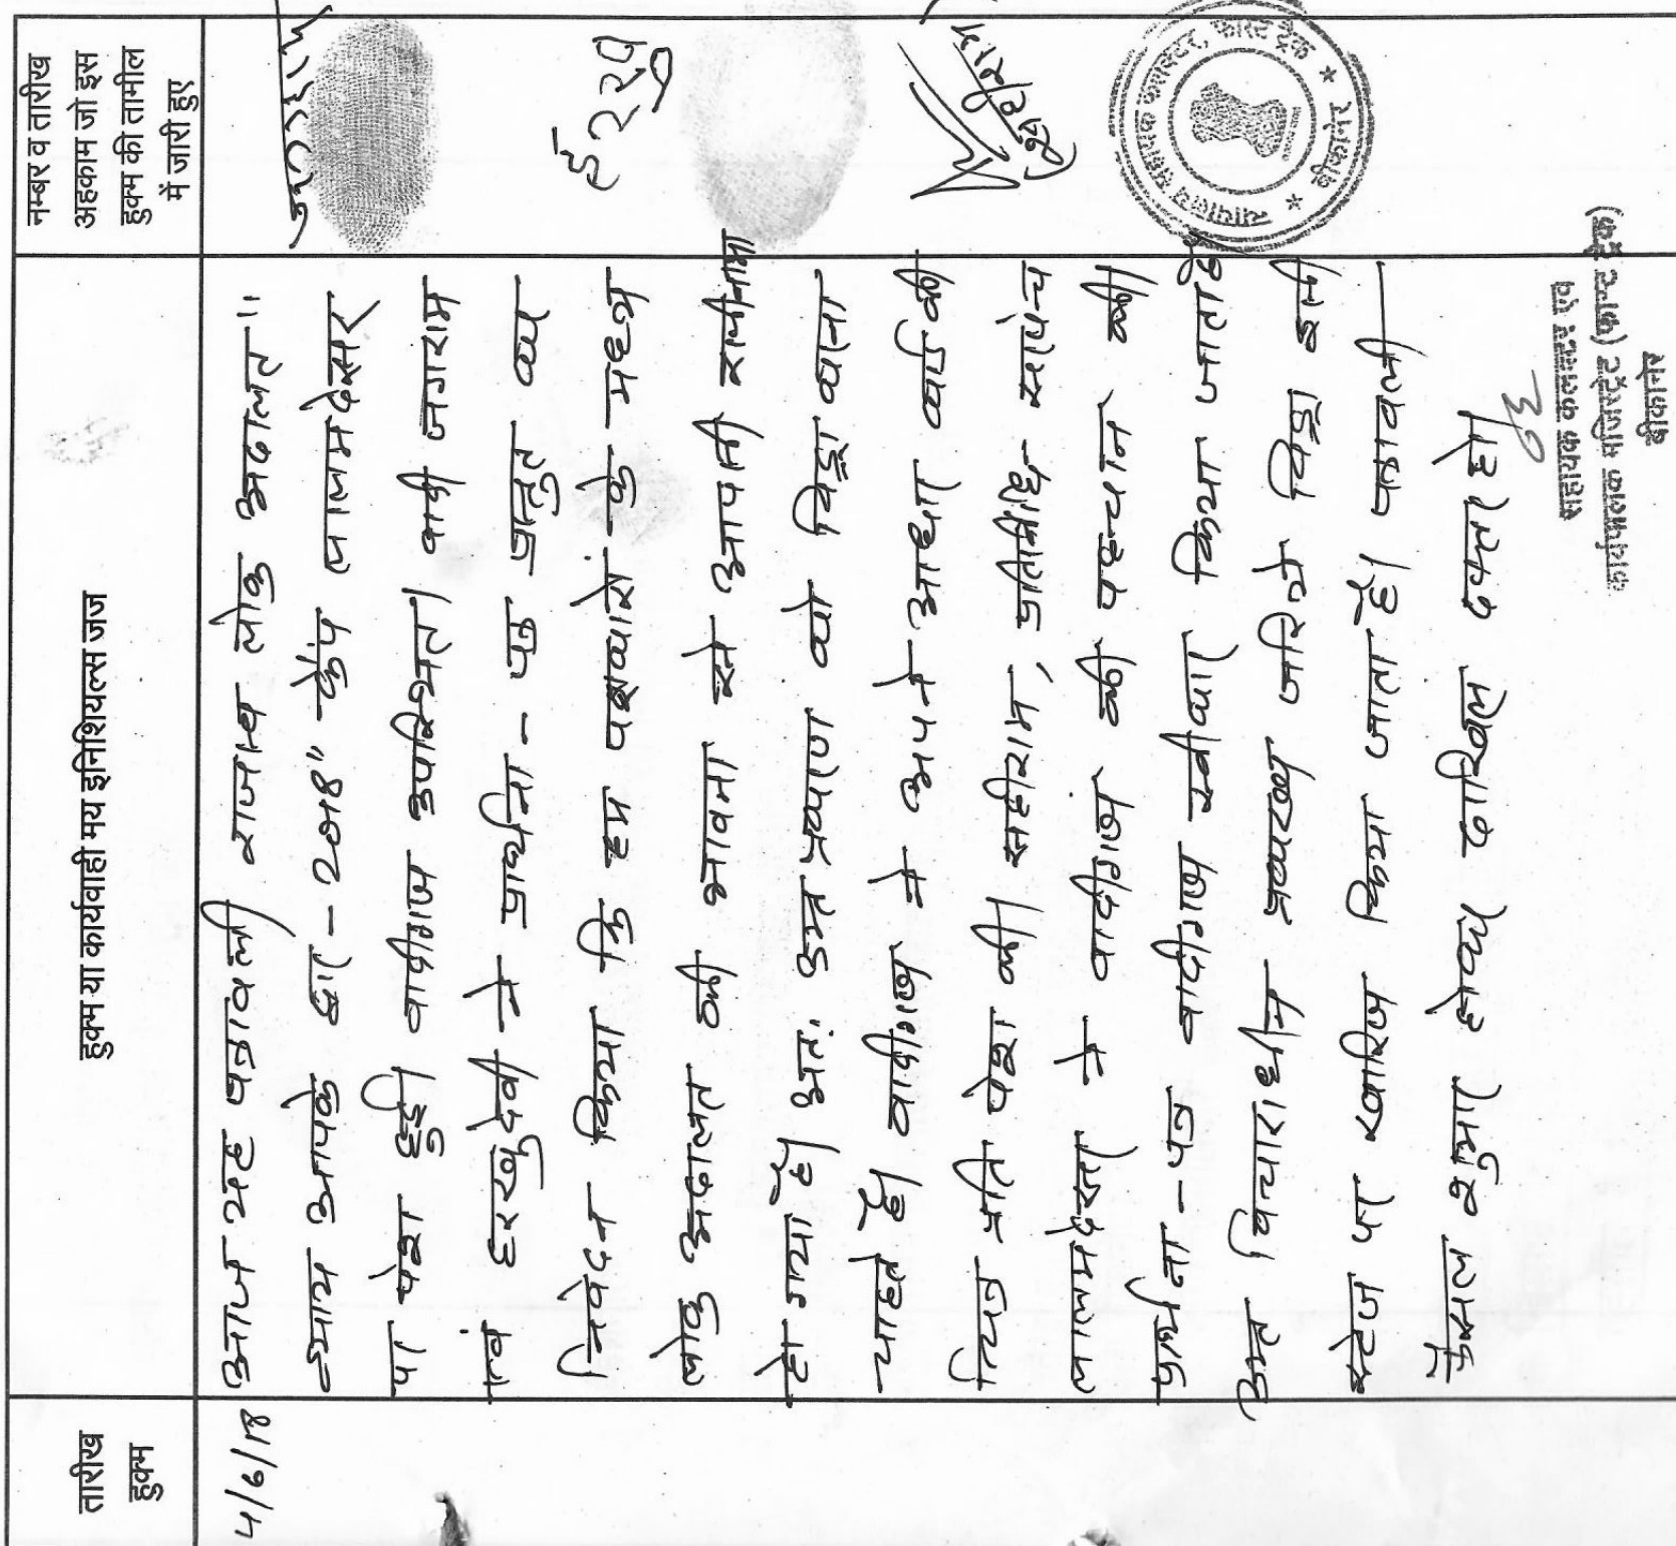 तारीख
हुक्म
हुक्म या कार्यवाही मय इनिशियल्स जज
नम्बर व तारीख
अहकाम जो इस
हुक्म की तामील
में जारी हुए
4/6/18
आज यह पत्रावली राजस्व लोक अदालत"
न्याय आपके द्वार - 2018" कैंप लालमदेसर
पर पेश हुई। वादीगण उपस्थित। वादी जगराम
एवं हरखूदेवी ने प्रार्थना - पत्र प्रस्तुत कर
निवेदन किया कि हम पक्षकारों के मध्य
लोक अदालत की भावना से आपसी राजीनामा
हो गया है। अतः उक्त प्रकरण को विड्रा करना
चाहते है। वादीगण ने अपने आधार कार्ड की
प्रति पेश की। सहीराम, प्रतिनिधि - सरपंच
लालमदेसर ने वादीगण की पहचान की
प्रार्थना - पत्र वादीगण स्वीकार किया जाता है
उक्त विचाराधीन प्रकरण जरिये विड्रा इसी
स्टेज पर खारिज किया जाता है। पत्रावली
फैसल शुमार होकर दाखिल दफ्तर हो।
हरखु
सहीराम
न्यायालय सहायक कलक्टर, फास्ट ट्रेक
★ बीकानेर ★
सहायक कलक्टर एवं
कार्यपालक मजिस्ट्रेट (फास्ट ट्रेक)
बीकानेर